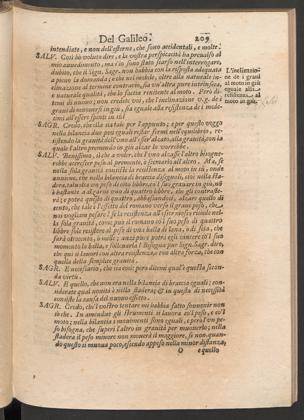 Del Galileo. 209
intendiate, e non dell'esterne, che sono accidentali, e molte.
SALV. Così hò voluto dire, e la vostra perspicacità ha prevalso al
mio avvedimento, ma
dubbio, che il Sign. Sagr. non habbia con la risposta adequata
a pieno la domanda; e che nel mobile, oltre alla naturale in-
clinazione al termine contrario, sia un'altra pure intrinseca,
e naturale qualità, che lo faccia renitente al moto. Però di-
temi di nuovo; non credete voi, che l'inclinazione v. g. de i
gravi di muoversi in giù, sia eguale alla resistenza de i mede-
simi all'esser spinti in sù?
L'inclinazio-
ne de i gravi
al moto in giù
eguale alla
resistenza al
moto in sù.
SAGR. Credo, che ella sia tale per l'appunto; e per questo veggo
nella bilancia due pesi eguali restar fermi nell'equilibrio, re-
sistendo la gravità dell'uno all'esser alzato, alla gravità, con la
quale l'altro premendo in giù alzar lo vorrebbe.
SALV. Benissimo, sì che a voler, che l'uno alzasse l'altro bisogne-
rebbe accrescer peso al premente, ò scemarlo all'altro. Ma, se
nella sola gravità consiste la resistenza al moto in sù, onde
avviene, che nella bilancia di braccia diseguali, cioè nella sta-
dera, talvolta un peso di cento libbre, col suo gravare in giù, nō
è bastante a alzarne uno di quattro libbre, che gli contraste-
rà; e potrà questo di quattro, abbassandosi, alzare quello di
cento, che tale è l'effetto del romano verso il grave peso, che
noi vogliam pesare? Se la resistenza all'esser mosso risiede nel-
la sola gravità, come può il romano col suo peso di quattro
libbre sole resistere al peso di una balla di lana, o di seta, che
sarà ottocento, ò mille; anzi pure potrà egli vincere co'l suo
momento la balla, e sollevarla? Bisogna pur Sign. Sagr. dire,
che qui si lavori con altra resistenza, e con altra forza, che con
quella della semplice gravità.
SAGR. È necessario, che sia così: però ditemi qual'è questa secon-
da virtù.
SALV. È quello, che non era nella bilancia di braccia eguali; con-
siderate qual novità è nella stadera; & in questa di necessità
consiste la causa del nuovo effetto.
SAGR. Credo, che'l vostro tentare mi habbia fatto sovvenire non
sò che. In amendue gli strumenti si lavora co'l peso, e co'l
moto; nella bilancia i movimenti sono eguali, e però l'un pe-
so bisogna, che superi l'altro in gravità per muoverlo; nella
stadera il peso minore non moverà il maggiore, se non quan-
do questo si muova poco, essendo appeso nella minor distanza,
O e quello